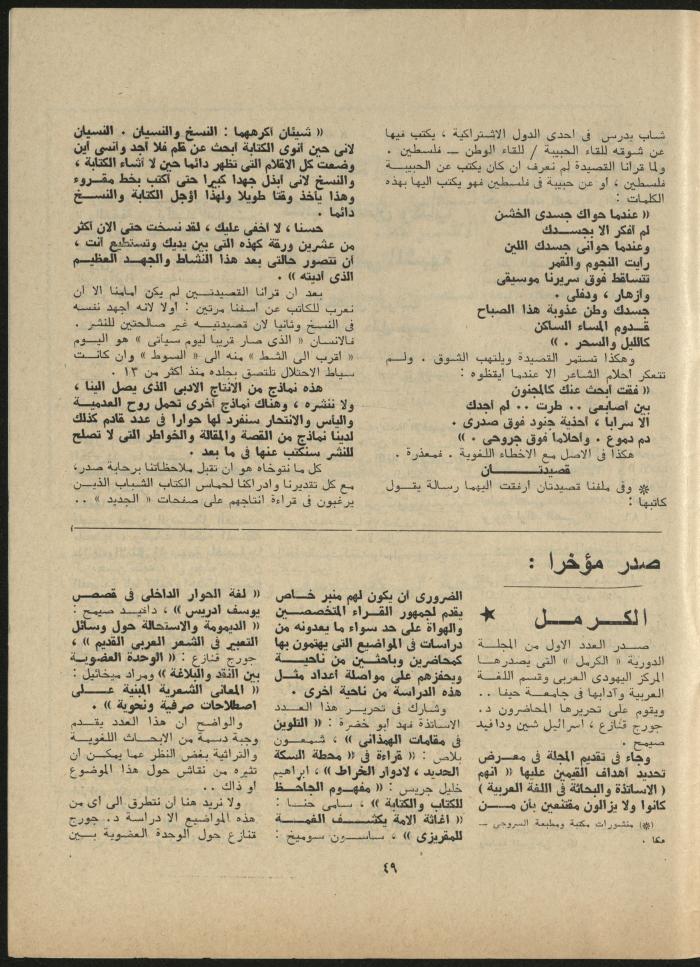 شاب يدرس في احدى الدول الاشتراكية ، يكتب فيها
عن شوقه للقاء الحبيبة / للقاء الوطن — فلسطين .
ولما قرأنا القصيدة لم نعرف ان كان يكتب عن الحبيبة
فلسطين ، او عن حبيبة في فلسطين فهو يكتب اليها بهذه
الكلمات :
« عندما حواك جسدى الخشن
لم افكر الا بجسدك
وعندما حوانى جسدك اللين
رأيت النجوم والقمر
تتساقط فوق سريرنا موسيقى
وأزهار ، ودفلى .
جسدك وطن عذوبة هذا الصباح
قدوم المساء الساكن
كالليل والسحر . »
وهكذا تستمر القصيدة ويلتهب الشوق . ولم
تتعكر أحلام الشاعر الا عندما ايقظوه :
« فقت ابحث عنك كالمجنون
بين أصابعى .. طرت .. لم اجدك
الا سرابا ، أحذية جنود فوق صدرى .
دم دموع . وأحلاما فوق جروحى . »
هكذا في الاصل مع الاخطاء اللغوية . فمعذرة .
قصيدتان
* وفى ملفنا قصيدتان ارفقت اليهما رسالة يقول
كاتبها :
« شيئان أكرههما : النسخ والنسيان . النسيان
لانى حين أنوى الكتابة ابحث عن قلم فلا أجد وأنسى أين
وضعت كل الاقلام التى تظهر دائما حين لا أشاء الكتابة ،
والنسخ لانى ابذل جهدا كبيرا حتى أكتب بخط مقروء
وهذا يأخذ وقتا طويلا ولهذا اؤجل الكتابة والنسخ
دائما .
حسنا ، لا اخفى عليك ، لقد نسخت حتى الان اكثر
من عشرين ورقة كهذه التى بين يديك وتستطيع أنت ،
أن تتصور حالتى بعد هذا النشاط والجهد العظيم
الذى أديته » .
بعد ان قرأنا القصيدتين لم يكن أمامنا الا ان
نعرب للكاتب عن اسفنا مرتين : اولا لانه أجهد نفسه
في النسخ وثانيا لان قصيدتيه غير صالحتين للنشر .
فالانسان « الذى صار قريبا ليوم سيأتى » هو اليوم
« اقرب الى الشط » منه الى « السوط » وان كانت
سياط الاحتلال تلتصق بجلده منذ أكثر من ١٣ .
هذه نماذج من الانتاج الادبى الذى يصل الينا ،
ولا ننشره ، وهناك نماذج أخرى تحمل روح العدمية
واليأس والانتحار سنفرد لها حوارا في عدد قادم كذلك
لدينا نماذج من القصة والمقالة والخواطر التى لا تصلح
للنشر سنكتب عنها فى ما بعد .
كل ما نتوخاه هو ان تقبل ملاحظاتنا برحابة صدر ،
مع كل تقديرنا وادراكنا لحماس الكتاب الشباب الذين
يرغبون في قراءة انتاجهم على صفحات « الجديد » ..
صدر مؤخرا :
الكرمل ★
صدر العدد الاول من المجلة
الدورية « الكرمل » التى يصدرها
المركز اليهودى العربى وقسم اللغة
العربية وآدابها في جامعة حيفا ..
ويقوم على تحريرها المحاضرون د.
جورج قنازع ، اسرائيل شين ودافيد
صيمح .
وجاء في تقديم المجلة في معرض
تحديد أهداف القيمين عليها « انهم
( الاساتذة والبحاثة في اللغة العربية )
كانوا ولا يزالون مقتنعين بأن من
(*) منشورات مكتبة ومطبعة السروجى —
عكا .
الضرورى أن يكون لهم منبر خاص
يقدم لجمهور القراء المتخصصين
والهواة على حد سواء ما يعدونه من
دراسات في المواضيع التى يهتمون بها
كمحاضرين وباحثين من ناحية
ويحفزهم على مواصلة اعداد مثل
هذه الدراسة من ناحية أخرى .
وشارك في تحرير هذا العدد
الاساتذة فهد أبو خضرة : « التلوين
في مقامات الهمذانى » ، شمعون
بلاص : « قراءة في « محطة السكة
الحديد ، لادوار الخراط » ، ابراهيم
خليل جريس : « مفهوم الجاحظ
للكتاب والكتابة » ، سامى حنا :
« اغاثة الامة بكشف الغمة
للمقريزى » ، ساسون سوميخ :
« لغة الحوار الداخلى فى قصص
يوسف ادريس » ، دافيد صيمح :
« الديمومة والاستحالة حول وسائل
التعبير في الشعر العربى القديم » ،
جورج قنازع : « الوحدة العضوية
بين النقد والبلاغة » ومراد ميخائيل :
« المعانى الشعرية المبنية على
اصطلاحات صرفية ونحوية » .
والواضح ان هذا العدد يقدم
وجبة دسمة من الابحاث اللغوية
والتراثية بغض النظر عما يمكن ان
تثيره من نقاش حول هذا الموضوع
او ذاك ..
ولا نريد هنا ان نتطرق الى اى من
هذه المواضيع الا دراسة د. جورج
قنازع حول الوحدة العضوية بين
٤٩